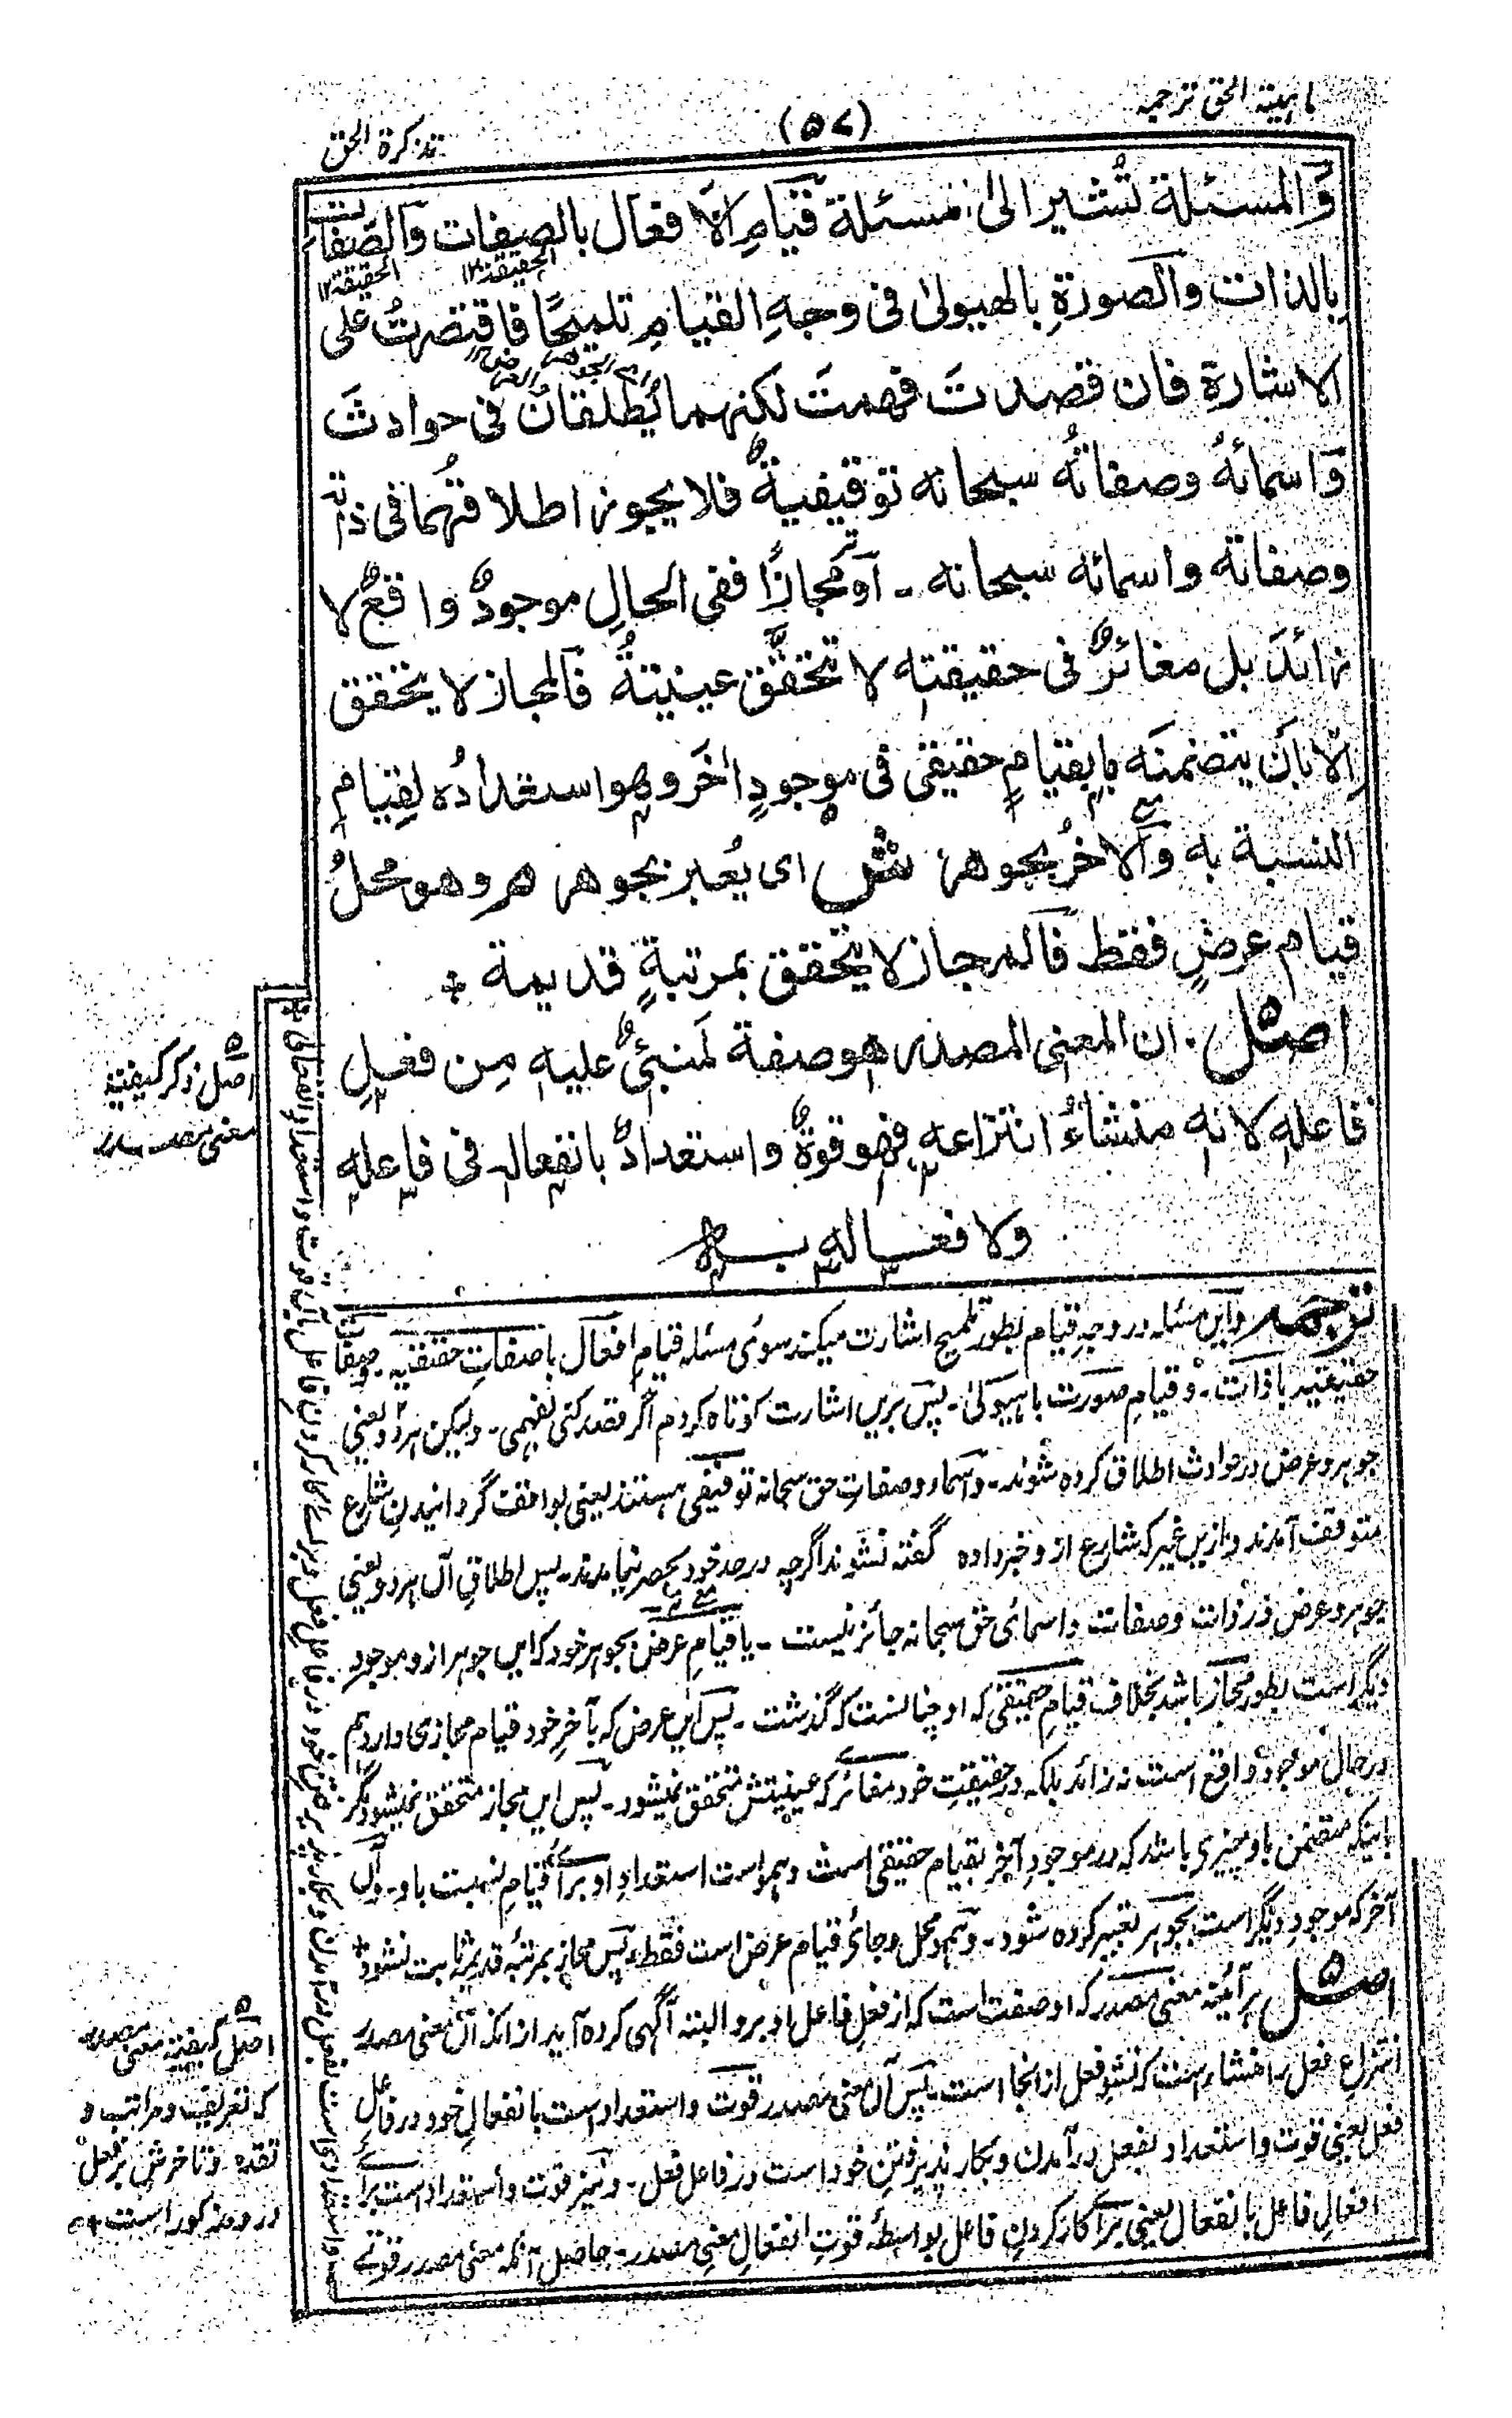 ماهیته الحق ترجمه
(۵۷)
تذکرة الحق
وَالمسئلة تُشیر الیٰ مسئلة قیامِ الافعال بالصفات والصفات
الحقیقة۱۲ الحقیقة۱۲
بالذات والصورةِ بالهیولیٰ فی وجهِ القیامِ تلمیحًا فاقتصرتُ علی
الاشارةِ فان قصدتَ فهمتَ لکنهما یُطلقان فی حوادث
وَاسمائهُ وصفاتهُ سبحانه توقیفیةٌ فلا یجوز اطلاقهُما فی ذاته
وصفاته واسمائه سبحانه ۔ اَو مجازًا ففی الحالِ موجودٌ واقعٌ لا
زائدَ بل مغائرٌ فی حقیقته لا تحقّق عینیتهُ فالمجاز لا یتحقق
اِلّا باَن یتضمنَه بقیامٍ حقیقی فی موجودٍ اٰخَر وهو استعدادُه لِقیام
النسبة به والاٰخرُ بجوهر ش ای یُعبر بجوهر هر وهو محلُ
قیام عرضٍ فقط فالمجاز لا یتحقق بمرتبةٍ قدیمة ٭
اصل ۔ ان المعنی المصدر هو صفة لَمنبئٌ علیه مِن فعلِ
فاعله لانه منشاءُ انتزاعه فهو قوةٌ واستعدادٌ بانفعاله فی فاعله
ولافعاله به
اصل ذکر کیفیته
معنی مصدر
ترجمه واین مسئله در وجهِ قیام بطور تلمیح اشارت میکند سوئی مسئله قیامِ افعال با صفاتِ حقیقیه وصفات
حقیقیه باذات ۔ و قیامِ صورت با هیولیٰ ۔ پس برین اشارت کوتاه کردم اگر قصد کنی بفهمی ۔ ولیکن هر دو یعنی
جوهر و عرض در حوادث اطلاق کرده شوند ۔ و اسما و صفاتِ حق سبحانه توقیفی هستند یعنی بواقفت گردانیدنِ شارع
متوقف آمدند و ازین غیر که شارع ازو خبر داده گفته نشوند اگرچه در حد خود بحصر نیامدند پس اطلاقِ آن هر دو یعنی
جوهر و عرض در ذات و صفات و اسمائی حق سبحانه جائز نیست ۔ یا قیامِ عرض بجوهر خود که این جوهر ازو موجودِ
دیگر است بطور مجاز باشد بخلاف قیام حقیقی که او چنانست که گذشت ۔ پس این عرض که بآخر خود قیام مجازی دارد هم
در حال موجود و واقع است نه زائد بلکه در حقیقتِ خود مغائر که عینیتش متحقق نمیشود ۔ پس این مجاز متحقق نمیشود مگر
باینکه متضمن باو چیزی باشد که در موجودِ آخر بقیام حقیقی است و همو است استعدادِ او برائے قیامِ نسبت باو ۔ و آن
آخر که موجودِ دیگر است بجوهر تعبیر کرده شود ۔ و همو محل و جائی قیام عرض است فقط ۔ پس مجاز بمرتبهٔ قدیمه ثابت نشود ٭
اصل هر آئینه معنی مصدر که او صفت است که از فعلِ فاعل او برو البته آگهی کرده آید از انکه آن معنی مصدر
انتزاعِ فعل را منشاء است که نشوِ فعل از انجا است ۔ پس آن معنی مصدر قوت و استعداد است بانفعالِ خود در فاعلِ
فعل یعنی قوت و استعداد بفعل در آمدن و بکار پذیرفتنِ خود است در فاعل فعل ۔ و نیز قوت و استعداد است برائے
افعالِ فاعل بانفعال یعنی برائے کار کردنِ فاعل بواسطهٔ قوتِ انفعالِ معنی مصدر ۔ حاصل آنکه معنی مصدر قوتے
اصل کیفیته معنی مصدر
که تعریف و مراتب و
تقدم و تاخرش بر فعل
درو مذکور است